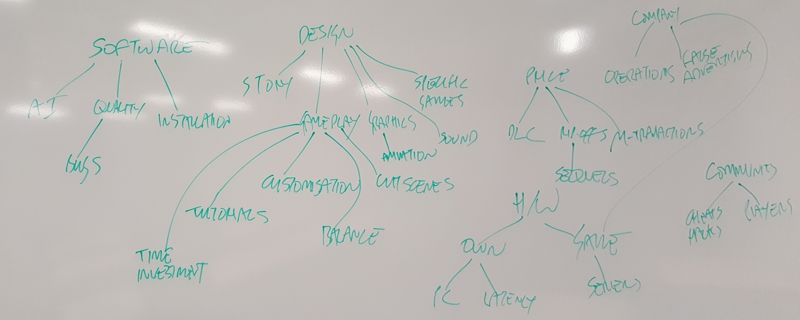 SOFTWARE
AI
QUALITY
INSTALLATION
BUGS
DESIGN
STORY
GAMEPLAY
GRAPHICS
SPECIFIC
GAMES
SOUND
ANIMATION
CUSTOMISATION
CUTSCENES
TUTORIALS
BALANCE
TIME
INVESTMENT
PRICE
DLC
M-TRANSACTIONS
H/W
OWN
GAME
PC
LATENCY
SERVERS
COMPANY
OPERATIONS
FALSE
ADVERTISING
COMMUNITY
CHEATS
HACKS
PLAYERS